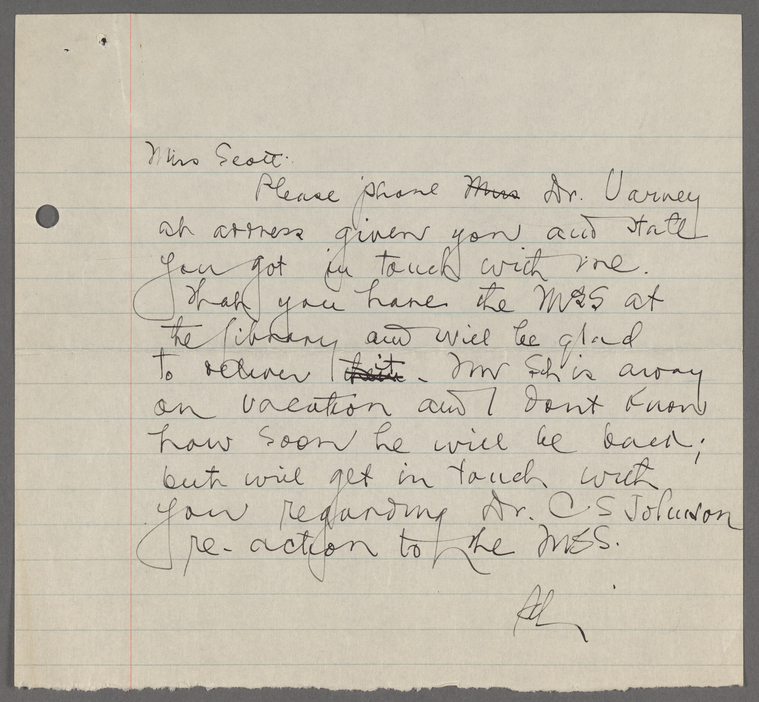 Miss Scott.
Please phone Miss Dr. Varney
at address given you and state
you got in touch with me.
That you have the MSS at
the library and will be glad
to deliver it. Mr Sch is away
on vacation and I dont know
how soon he will be back;
but will get in touch with
you regarding Dr. C S Johnson
re-action to the MSS.